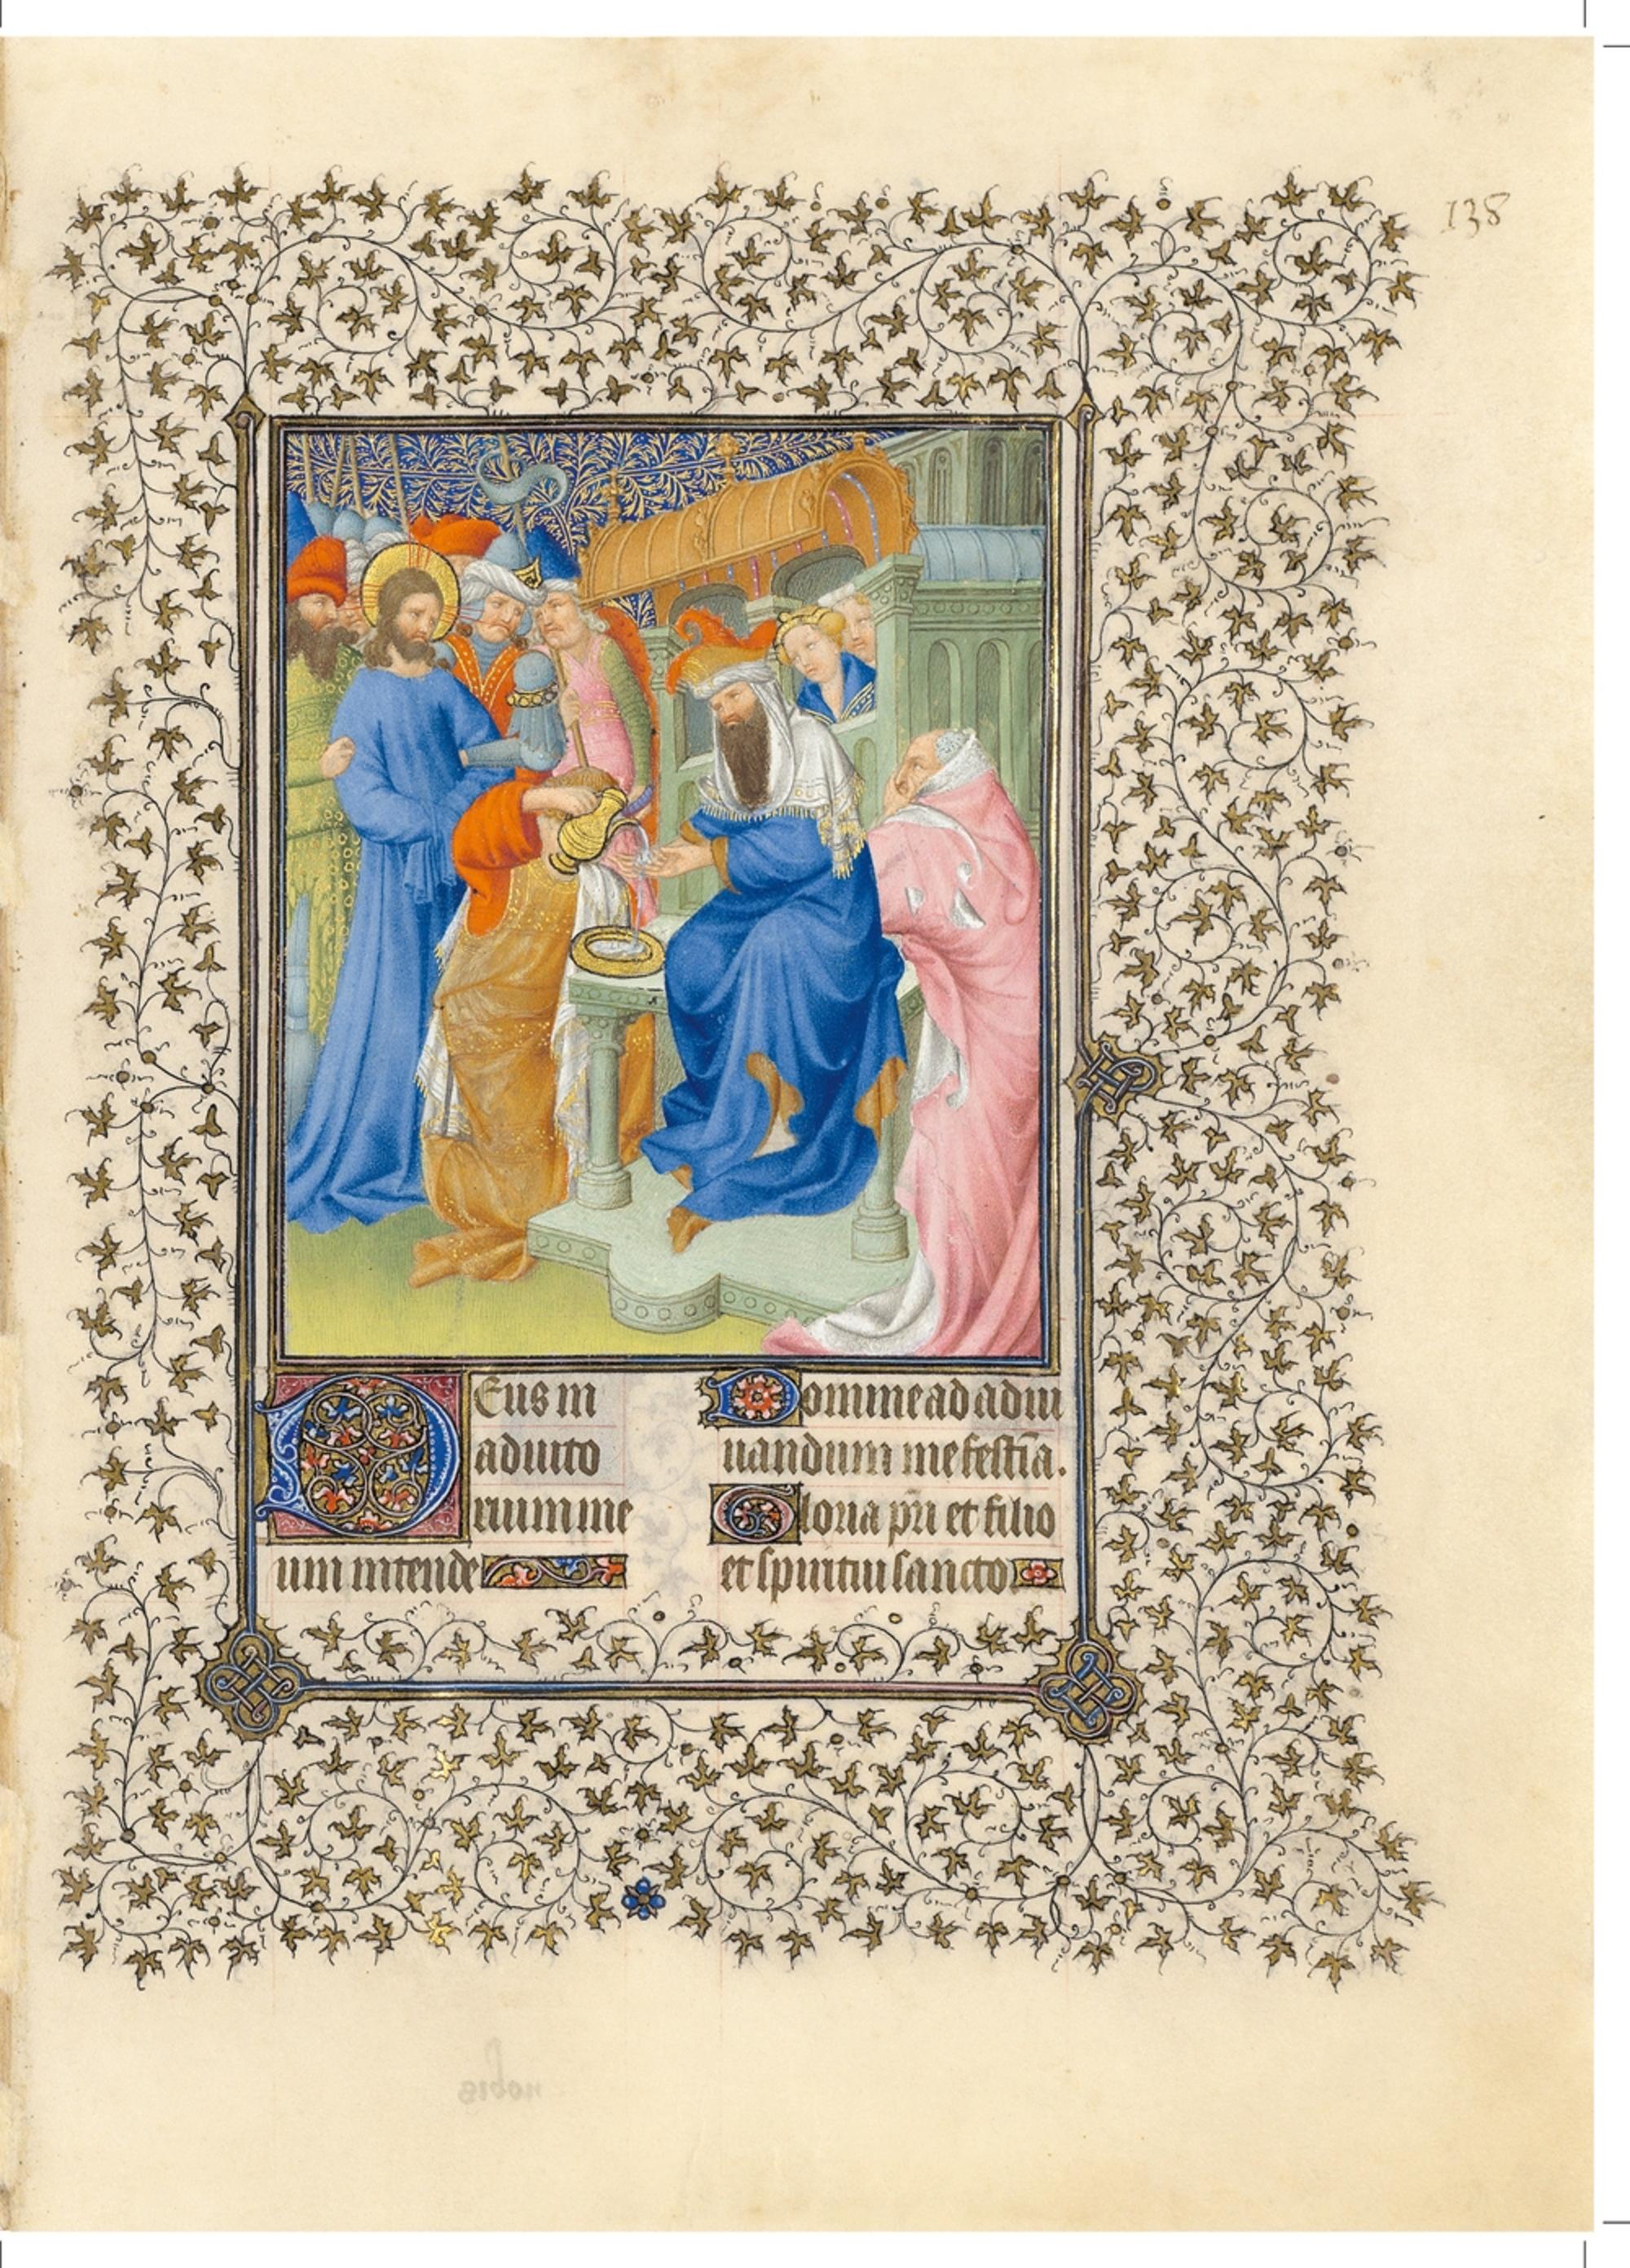 138
Deus in
adiuto
rium me
um intende
Domine ad adiu
uandum me festīa.
Gloria pr̄i et filio
et spiritui sancto
nobis